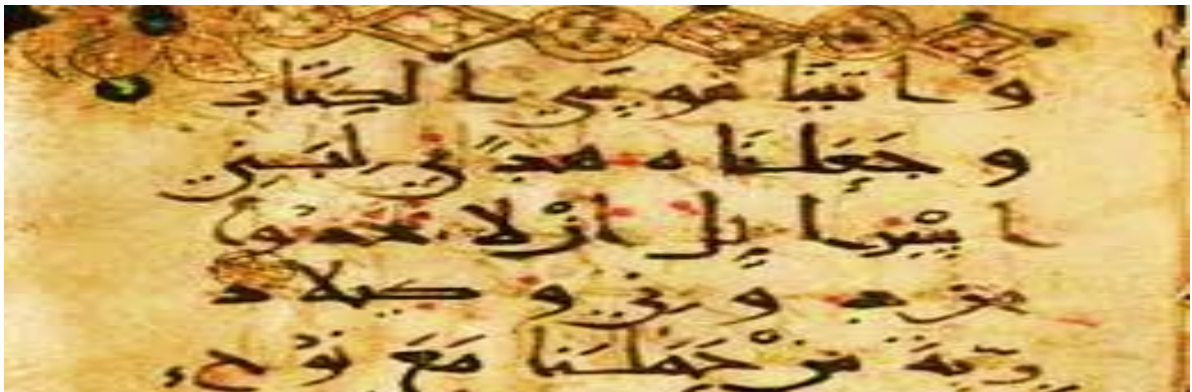 و ا تينا موسى ا لكتاب
و جعلنا ه هدًى لبني
ا سرا يل ا نْ لا تتخذوا
من د و ني و كيلا ذ
رّيةَ منْ حَمَلْنا مَعَ نوح